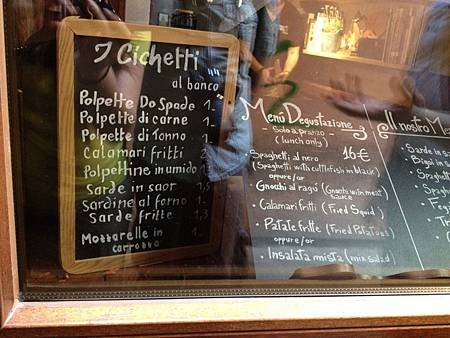 I Cichetti
al banco
Polpette Do Spade 1.-
Polpette di carne 1.-
Polpette di Tonno 1.-
Calamari fritti 2.-
Polpettine in umido 1.-
Sarde in saor 1,5
Sardine al forno 1.-
Sarde fritte 1,3
Mozzarelle in
carrozza
Menù Degustazione
- Solo a pranzo -
(lunch only)
16€
• Spaghetti al nero
(Spaghetti with cuttlefish in black)
oppure/or
• Gnocchi al ragù (Gnochs with meat
sauce
• Calamari fritti (Fried Squid)
• Patate fritte (Fried Potatoes)
oppure/or
• Insalata mista (mix salad
Il nostro Me
• Sarde in s
• Bigoi in s
• Spaghett
• Spagh
• Feg
• Tr